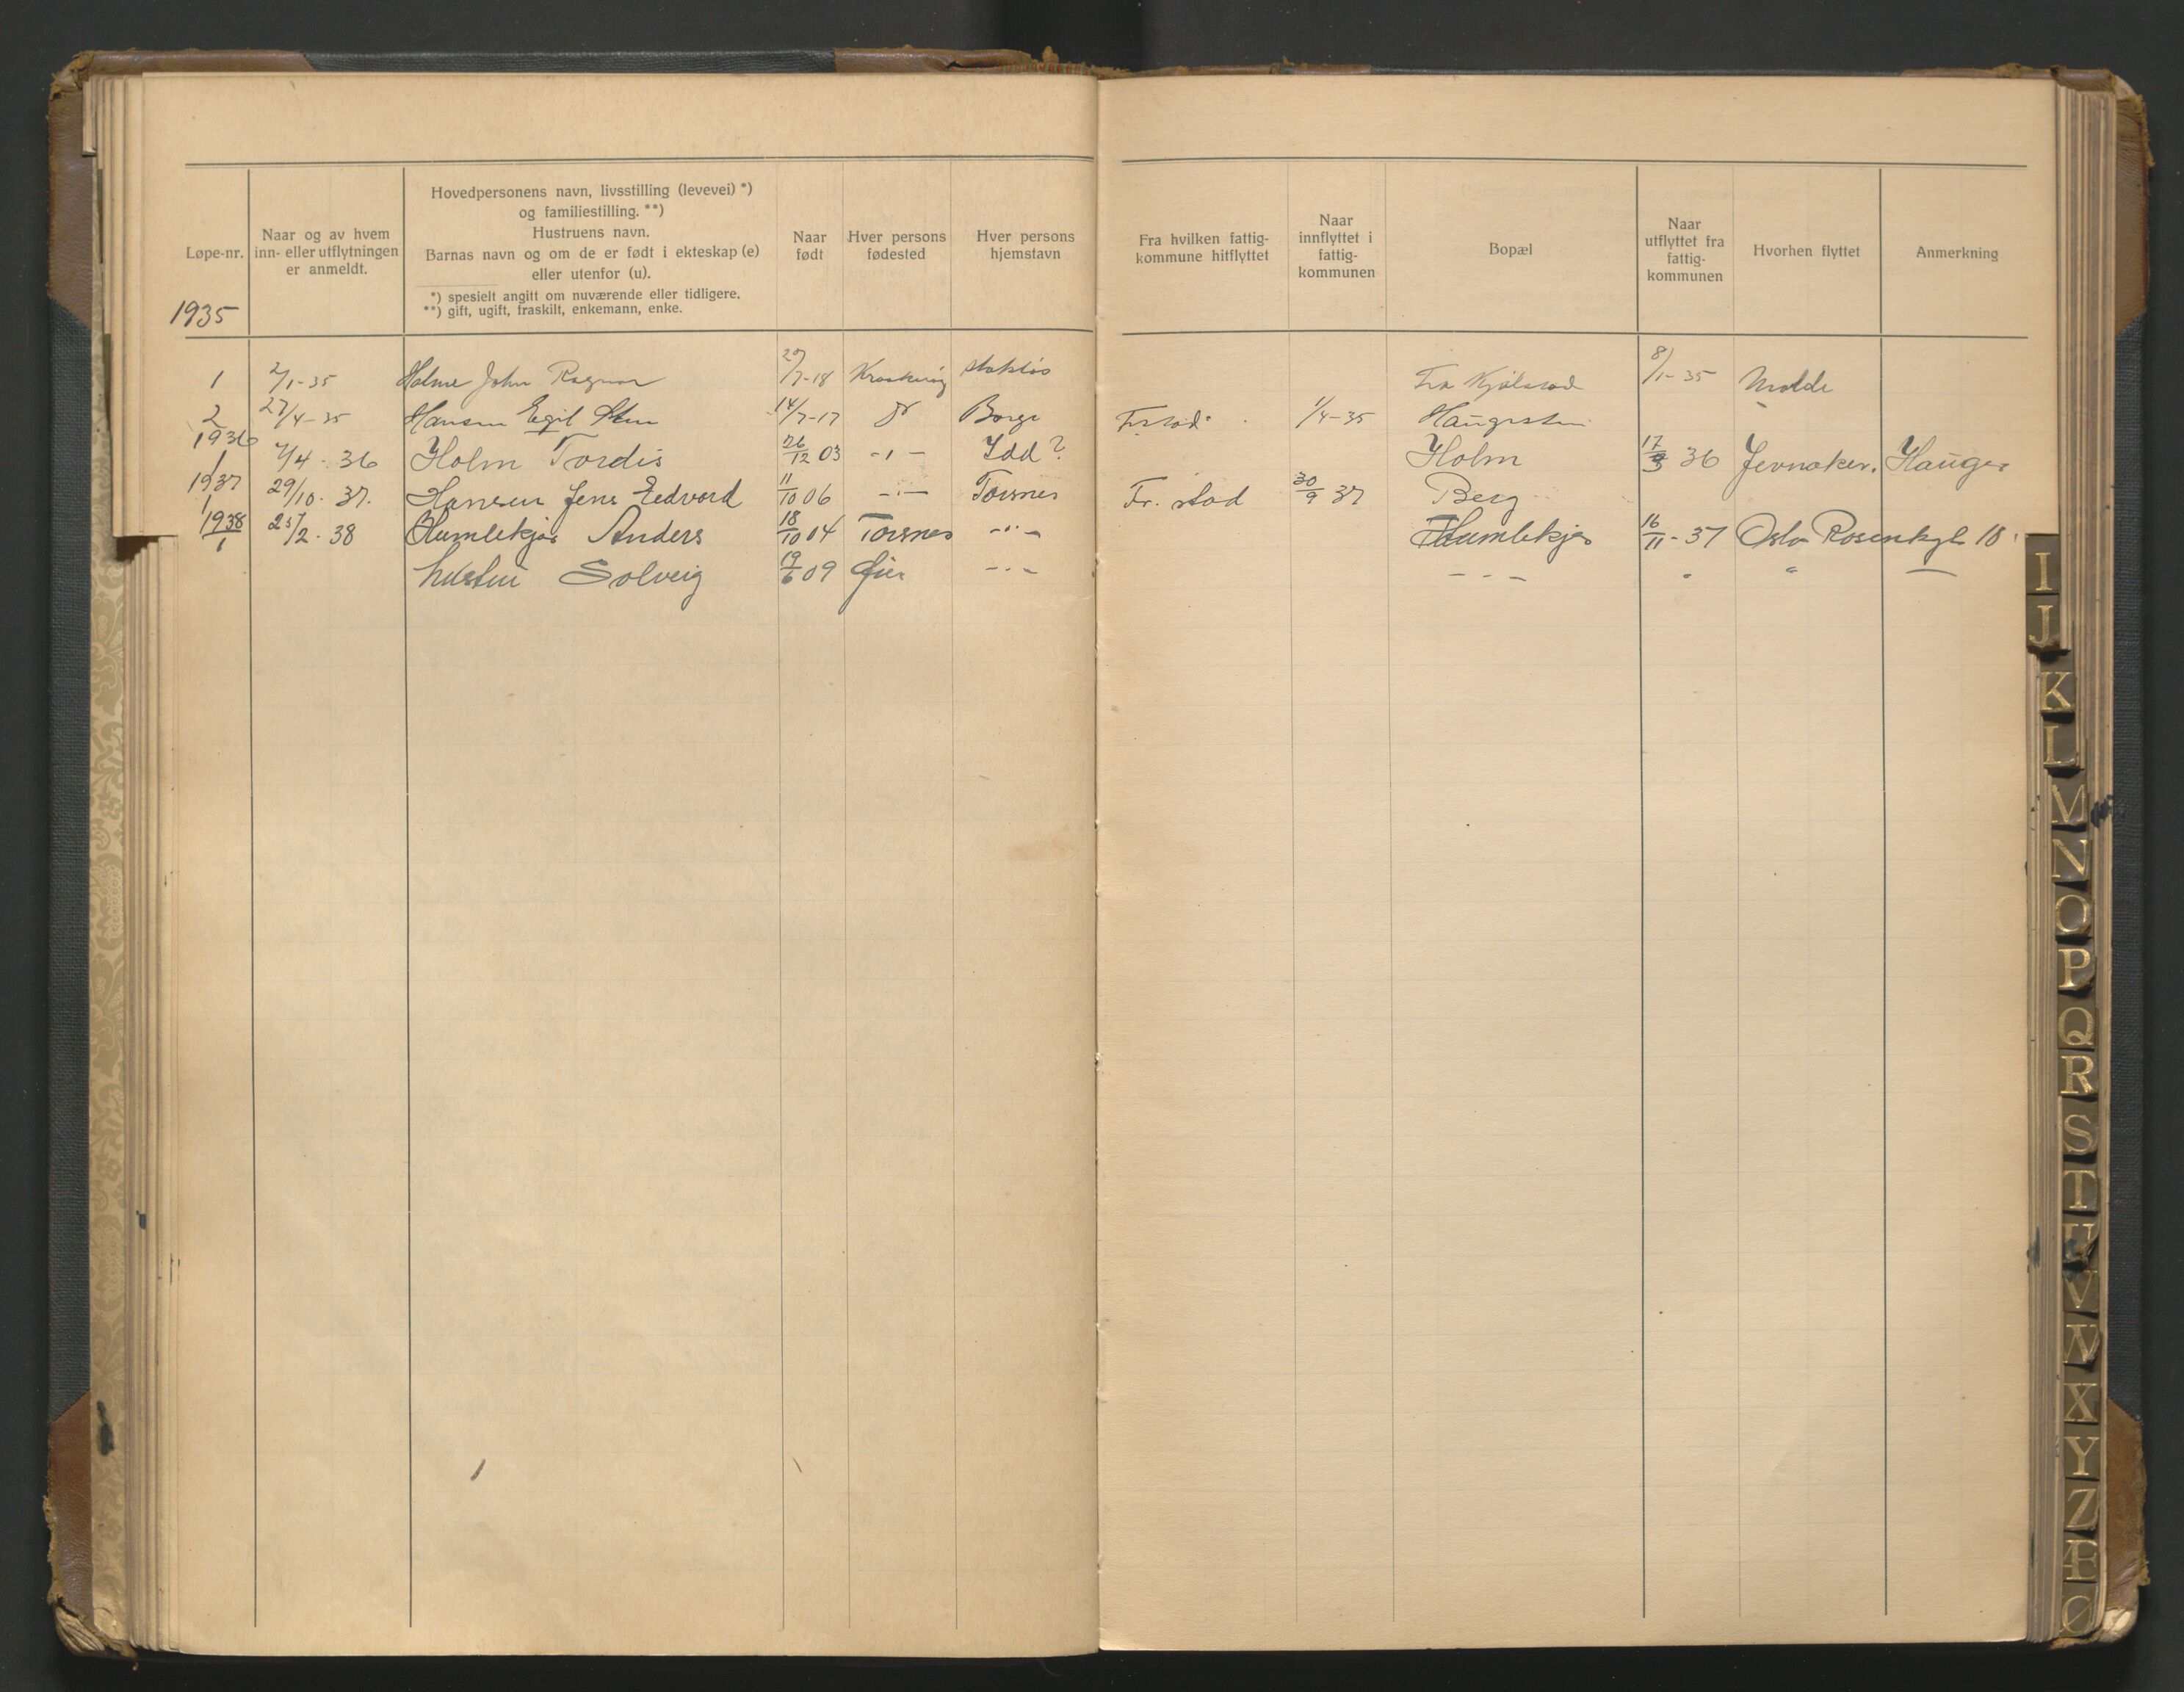 Løpe-nr.
1935
Naar og av hvem
inn- eller utflytningen
er anmeldt.
Hovedpersonens navn, livsstilling (levevei) *)
og familiestilling. **)
Hustruens navn.
Barnas navn og om de er født i ekteskap (e)
eller utenfor (u).
*) spesielt angitt om nuværende eller tidligere.
**) gift, ugift, fraskilt, enkemann, enke.
Naar
født
Hver persons
fødested
Hver persons
hjemstavn
Fra hvilken fattig-
kommune hitflyttet
Naar
innflyttet i
fattig-
kommunen
Bopæl
Naar
utflyttet fra
fattig-
kommunen
Hvorhen flyttet
Anmerkning
1 2/1-35 Holme John Ragnar 29/7-18 Kraakerøy Fra Kjølsrød 8/1-35 Molde
2 27/4-35 Hansen Egil 14/7-17 Borge Frstad. 1/4-35 Haugesten
1936
1 7/4-36 Holm Tordis 26/12 03 -"- Idd? Holm 17/3 36 Jevnaker. Hauger
1937
1 29/10-37. Hansen Jens Eedvard 11/10 06 -"- Torsnes Fr. stad 30/9 37 Berg
1938
1 25/2-38 Humlekjær Anders 18/10 04 Torsnes -"- Humlekjær 16/11-37 Oslo Rosenkgt. 18
hustru Solveig 19/6 09 -"- -"- " " —
I
J
K
L
M
N
O
P
Q
R
S
T
U
V
W
X
Y
Z
Æ
Ø